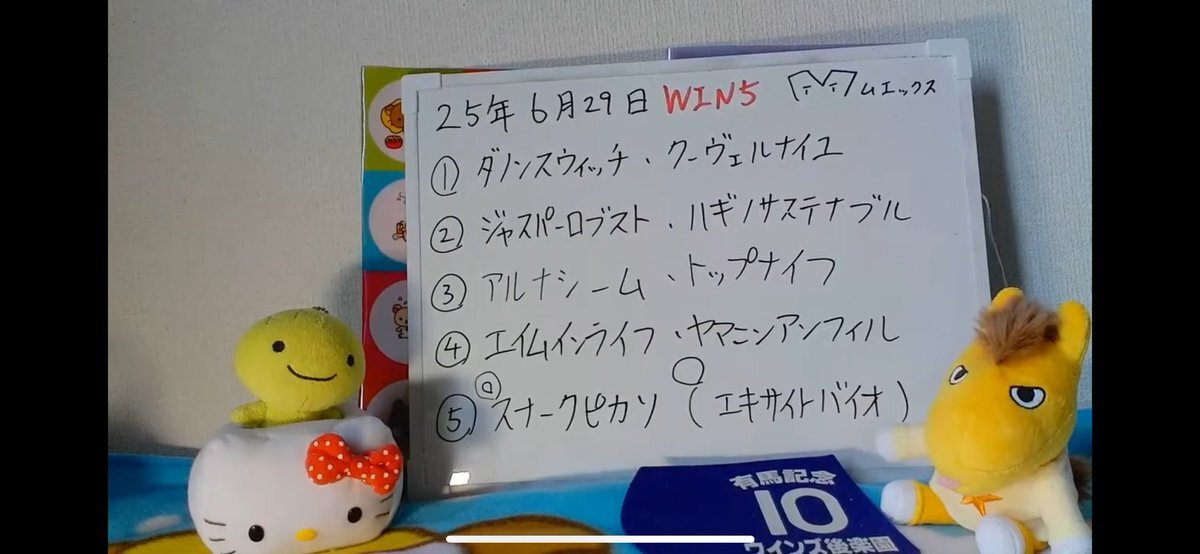 25年6月29日 WIN5 ムエックス
① ダノンスウィッチ、クーヴェルナイユ
② ジャスパーロブスト、ハギノサステナブル
③ アルナシーム、トップナイフ
④ エイムインライフ、ヤマニンアンフィル
◎ ○
⑤ スナークピカソ (エキサイトバイオ)
有馬記念
10
ウインズ後楽園